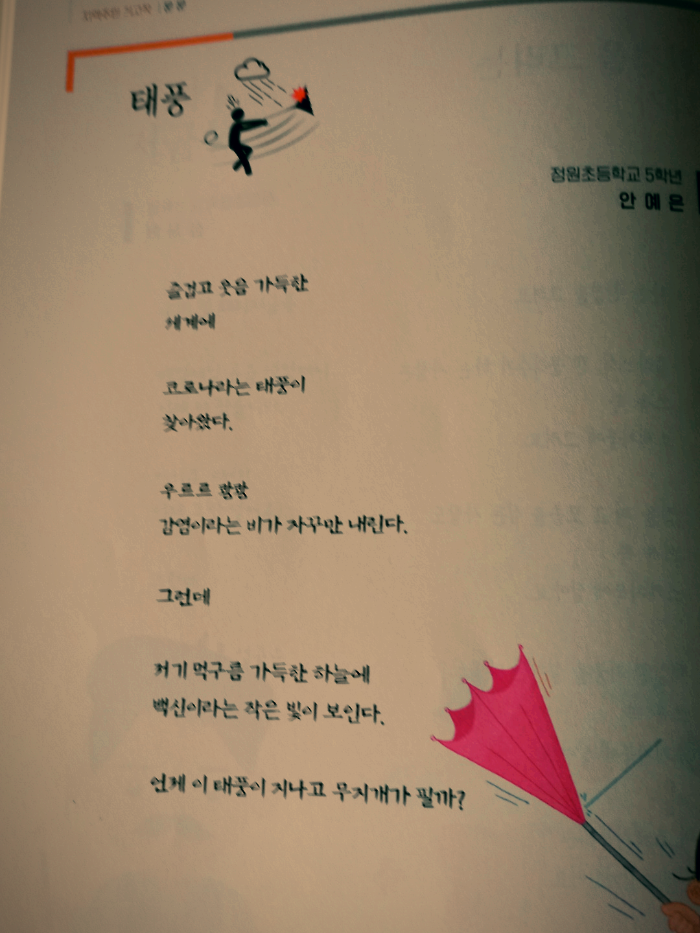 태풍
정원초등학교 5학년
안 예 은
즐겁고 웃음 가득한
세계에
코로나라는 태풍이
찾아왔다.
우르르 쾅쾅
감염이라는 비가 자꾸만 내린다.
그런데
저기 먹구름 가득한 하늘에
백신이라는 작은 빛이 보인다.
언제 이 태풍이 지나고 무지개가 필까?